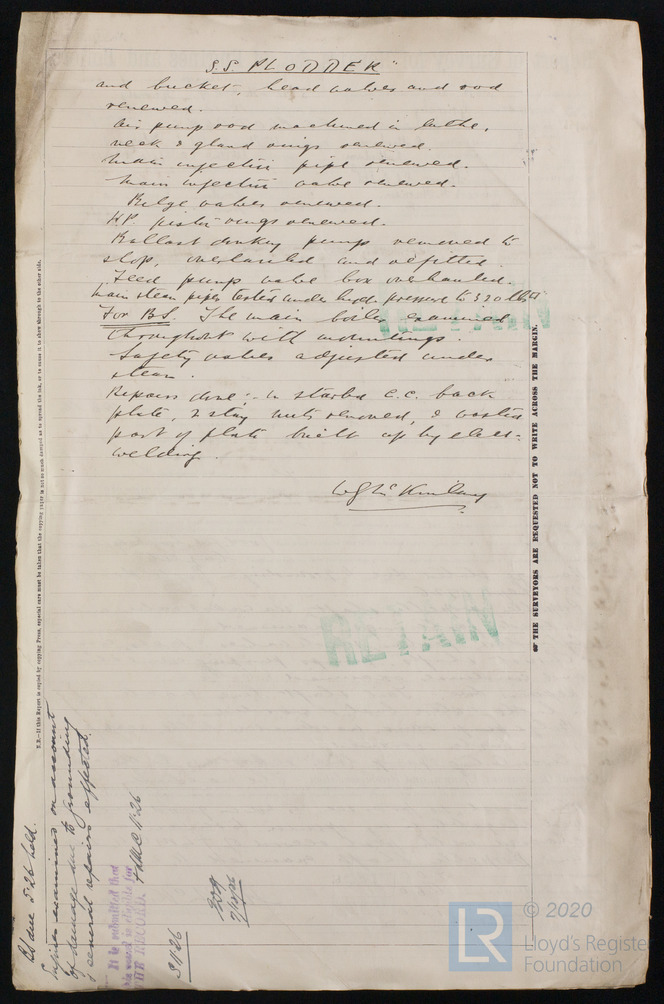 S.S. PLODDER"
and bucket, head valves and rod
renewed.
Air pump rod machined in lathe,
neck & gland rings renewed.
Main injection pipe renewed.
Main injection valve renewed.
Bilge valves renewed.
H.P. piston rings renewed.
Ballast donkey pump removed to
shop, overhauled and refitted.
Feed pump valve box overhauled.
Main steam pipes tested under hyd. pressure to 320 lbs
For B.S. The main boiler examined
throughout with mountings.
Safety valves adjusted under
steam.
Repairs done:- in starbd C.C. back
plate, 2 stay nuts renewed, & wasted
part of plate built up by elec-
welding.
W G McKinlay
RETAIN
RETAIN
OF THE SURVEYORS ARE REQUESTED NOT TO WRITE ACROSS THE MARGIN.
T.R.—If this Report is copied by copying Press, especial care must be taken that the copying paper is not so much damped as to spread the ink, or to cause it to show through to the other side.
BS due 5.26 held.
examined on account
of damage due to grounding
& general repairs effected.
It is submitted that
this vessel is eligible for
THE RECORD. + LMC 11.26
3.11.26
© 2020
LR
Lloyd's Register
Foundation